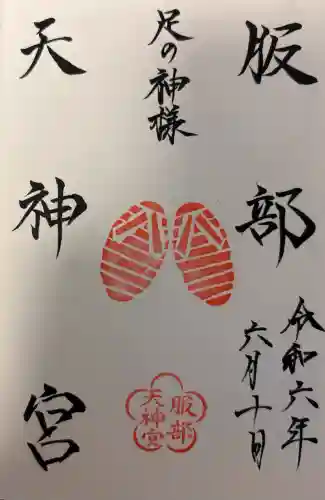 服部
天神宮
足の神様
令和六年
六月十日
服部
天神宮